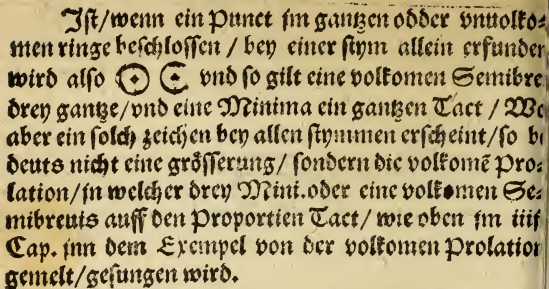 Jſt/wenn ein Punct im gantzen odder vnuolko⸗
men ringe beſchloſſen / bey einer ſtym allein erfunden
wird alſo ʘ vnd ſo gilt eine volkomen Semibre
drey gantze/vnd eine Minima ein gantzen Tact / Wo
aber ein ſolch zeichen bey allen ſtymmen erſcheint/ſo be
deuts nicht eine gröſſerung/ ſondern die volkomē Pro⸗
lation/in welcher drey Mini.oder eine volkomen Se⸗
mibreuis auff den Proportien Tact/ wie oben im iiij
Cap. inn dem Exempel von der volkomen Prolation
gemelt/geſungen wird.